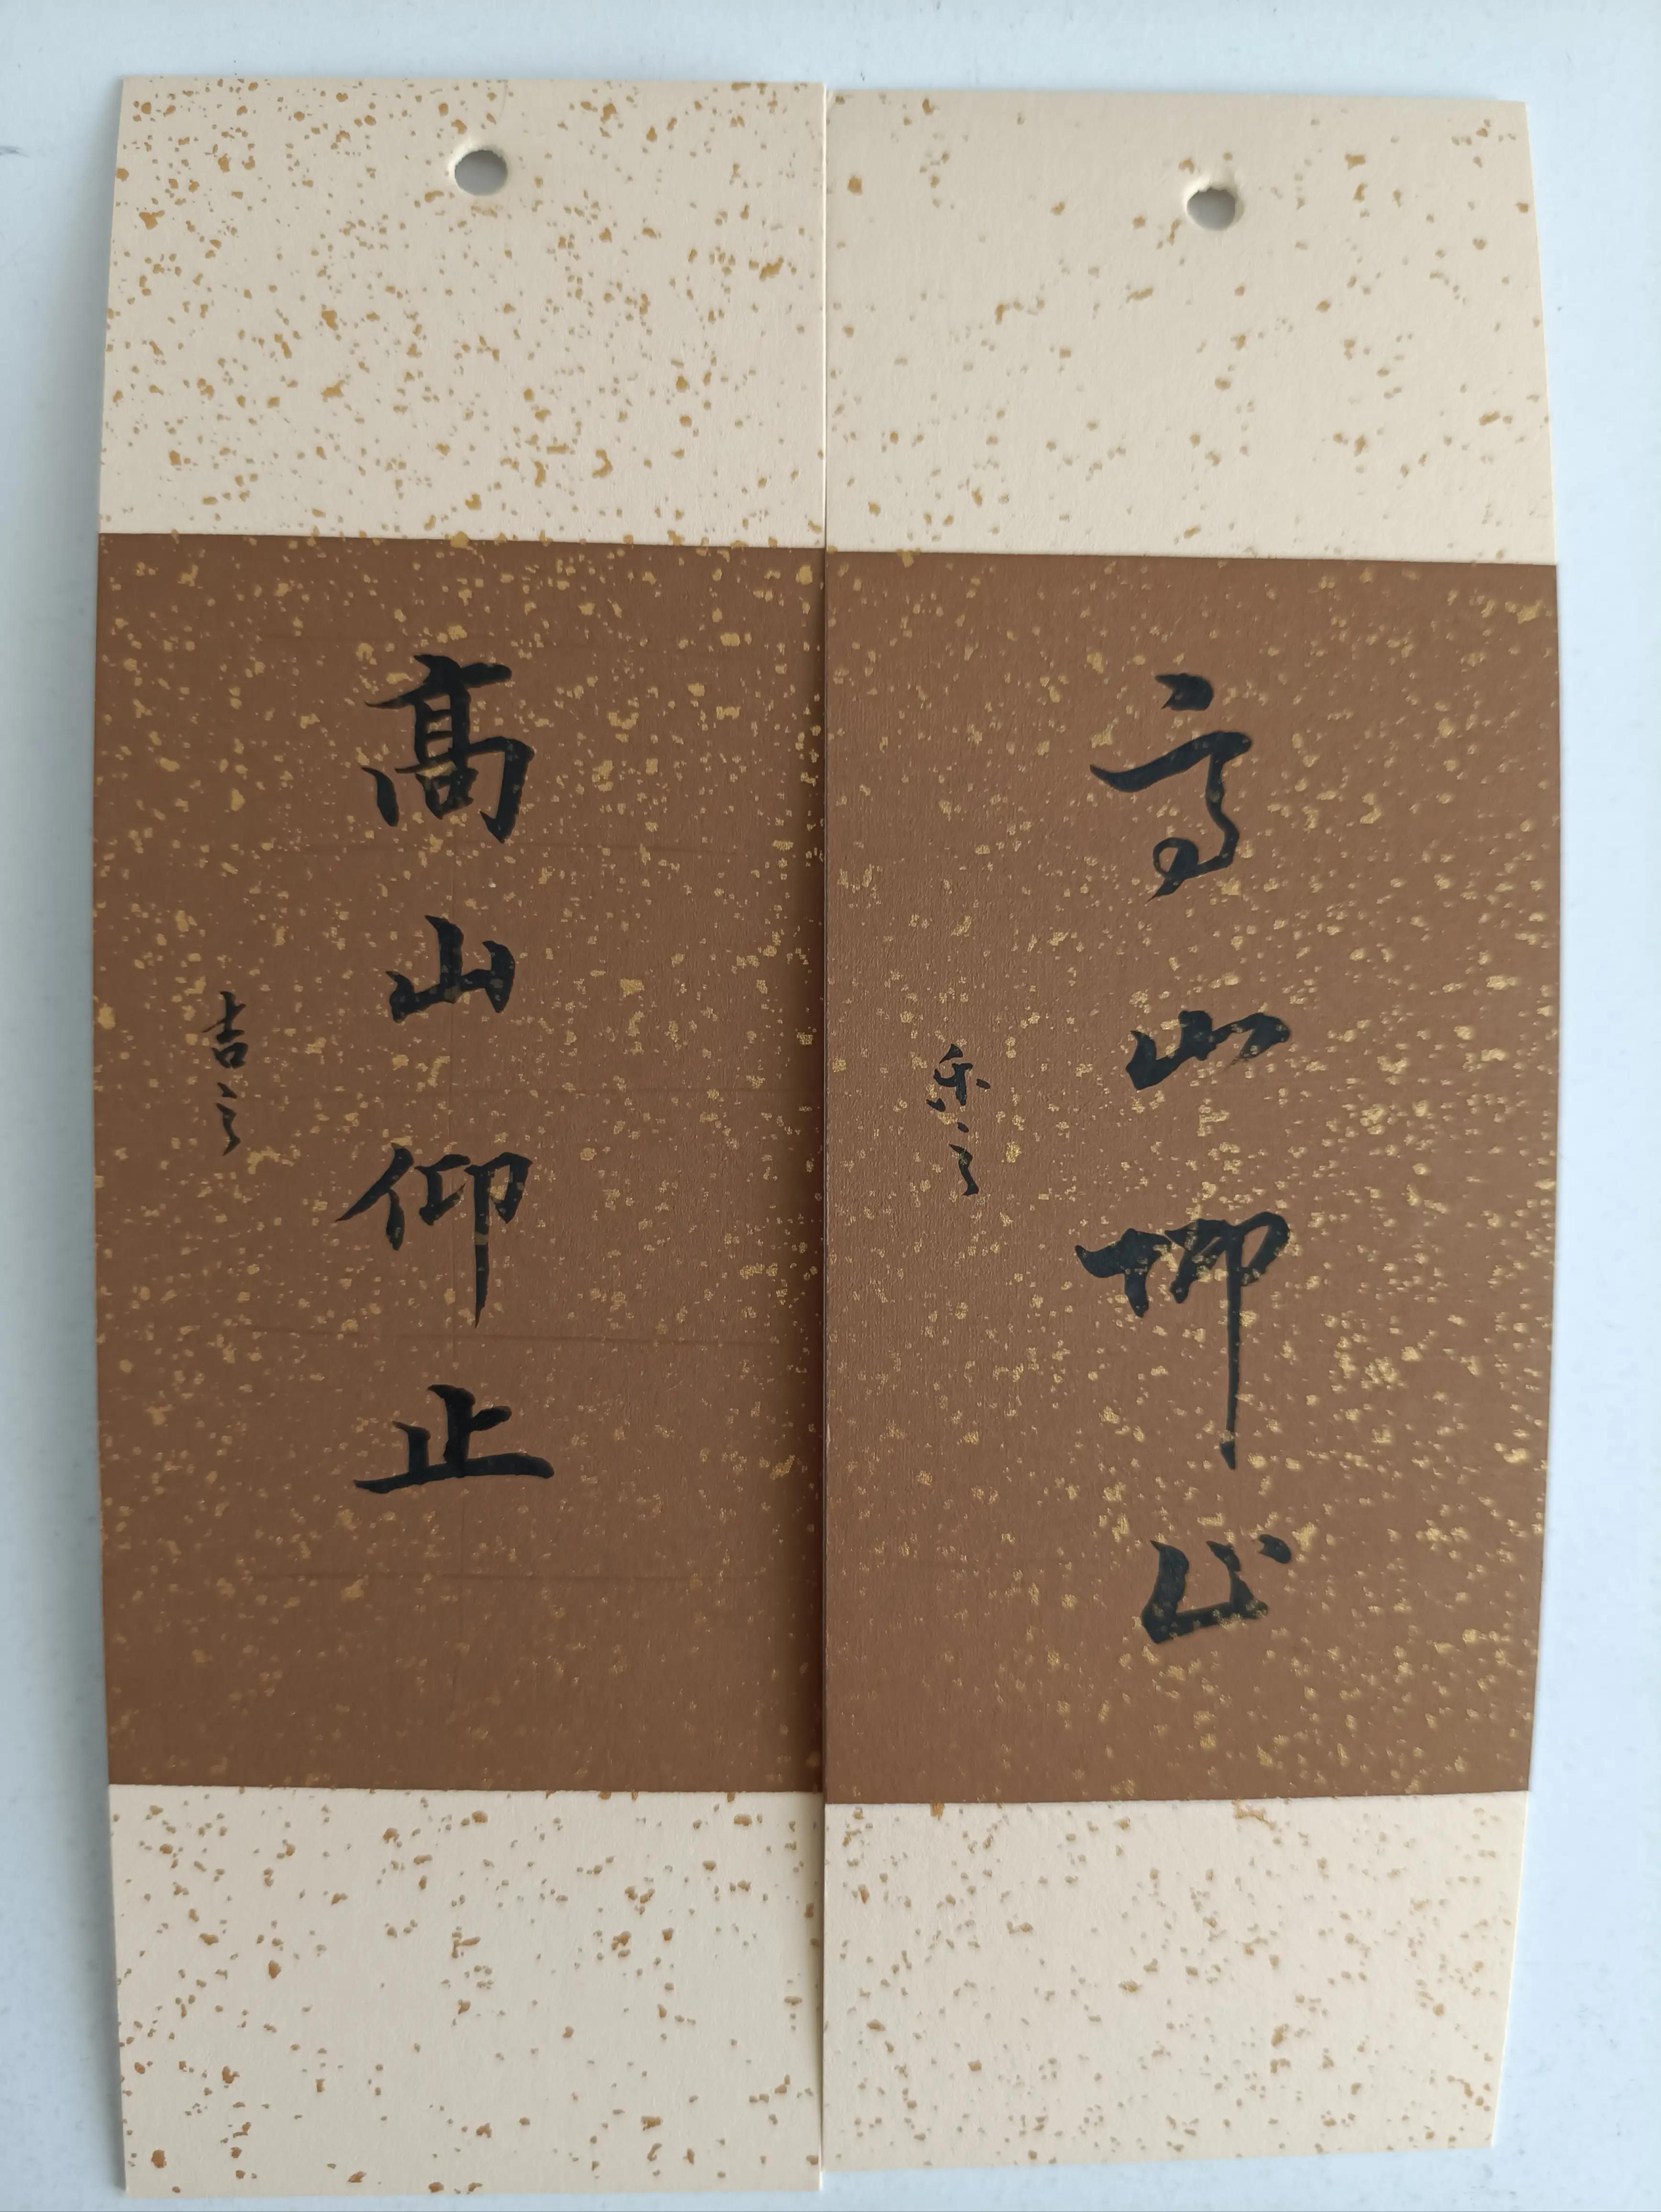 高山仰止
乐之
髙山仰止
吉之